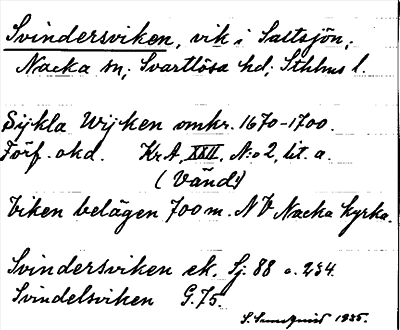 Svindersviken, vik i Saltsjön,
Nacka sn, Svartlösa hd, Sthlms l.
Sijkla Wijken omkr. 1670-1700.
Förf. okd. KrA, XXII, N:o 2, lit. a.
(Vänd!)
Viken belägen 700 m. NV Nacka kyrka.
Svindersviken ek. Sj. 88 o. 234.
Svindelsviken G. 75.
1935.